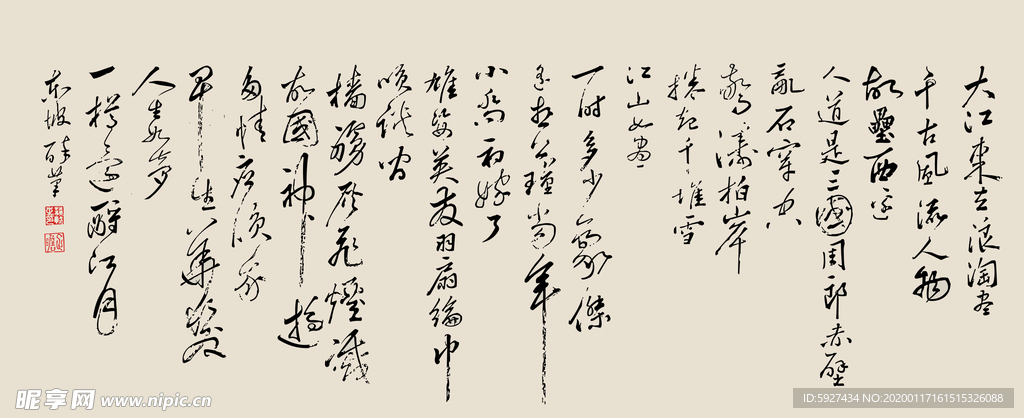 大江東去浪淘盡
千古風流人物
故壘西邊
人道是三國周郎赤壁
亂石穿空
驚濤拍岸
捲起千堆雪
江山如畫
一時多少豪傑
遙想公瑾當年
小喬初嫁了
雄姿英發羽扇綸巾
笑談間
檣櫓灰飛煙滅
故國神遊
多情應笑我
早生華髮
人生如夢
一樽還酹江月
東坡醉筆
昵享网 www.nipic.cn
ID:5927434 NO:20200117161515326088